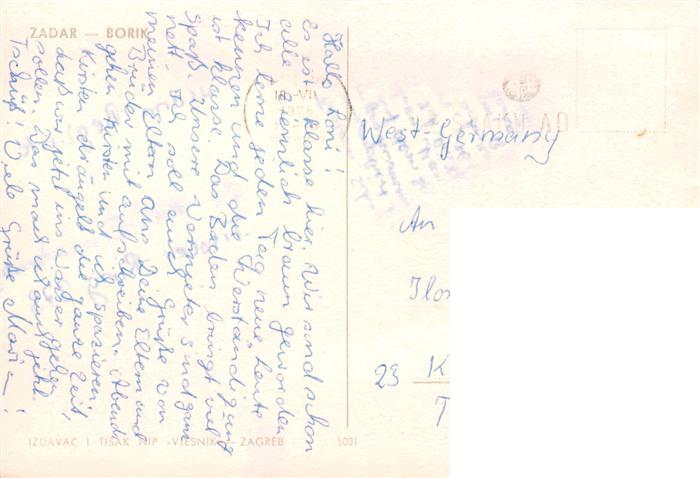 ZADAR — BORIK
Hallo Loni!
Es ist klasse hier. Wir sind schon
alle ziemlich braun geworden
Ich lerne jeden Tag neue Leute
kennen und die Verständigung
ist klasse. Das Baden bringt viel
Spaß. Unsere Vermieter sind ganz
nett. Ich soll euch Grüße von
meinen Eltern ans Deine Eltern und
Bruder mit aufschreiben. Abends
gehen Kirsten und ich spazieren
Kirsten drängelt die ganze Zeit,
daß wir jetzt ins Wasser gehen
sollen. Das mach ich auch jetzt.
Tschüß! Viele Grüße
18.-VII
1975
West-Germany
An
Ilo
23 K
T
IZDAVAC I TISAK NIP »VJESNIK« — ZAGREB
5001